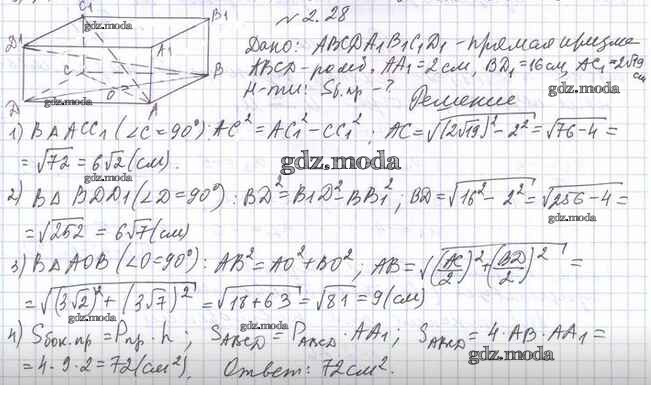 C₁ B₁ № 2.28
gdz.moda
D₁ A₁ Дано: ABCDA₁B₁C₁D₁ - прямая призма
C B ABCD - ромб, AA₁ = 2 см, BD₁ = 16 см, AC₁ = 2√19 см
gdz.moda
D O A Н-ти: Sб.пр - ?
gdz.moda
Решение
1) В △ ACC₁ (∠C = 90°): AC² = AC₁² - CC₁²; AC = √((2√19)² - 2²) = √(76 - 4) =
gdz.moda
= √72 = 6√2 (см).
gdz.moda
2) В △ BDD₁ (∠D = 90°): BD² = B₁D² - BB₁²; BD = √(16² - 2²) = √(256 - 4) =
gdz.moda
gdz.moda
= √252 = 6√7 (см)
3) В △ AOB (∠O = 90°): AB² = AO² + BO²; AB = √((AC/2)² + (BD/2)²) =
gdz.moda
= √((3√2)² + (3√7)²) = √(18 + 63) = √81 = 9 (см)
gdz.moda
gdz.moda
4) Sбок.пр = Pпр · h; SABCD = PABCD · AA₁; SABCD = 4 · AB · AA₁ =
gdz.moda
= 4 · 9 · 2 = 72 (см²). Ответ: 72 см².
gdz.moda